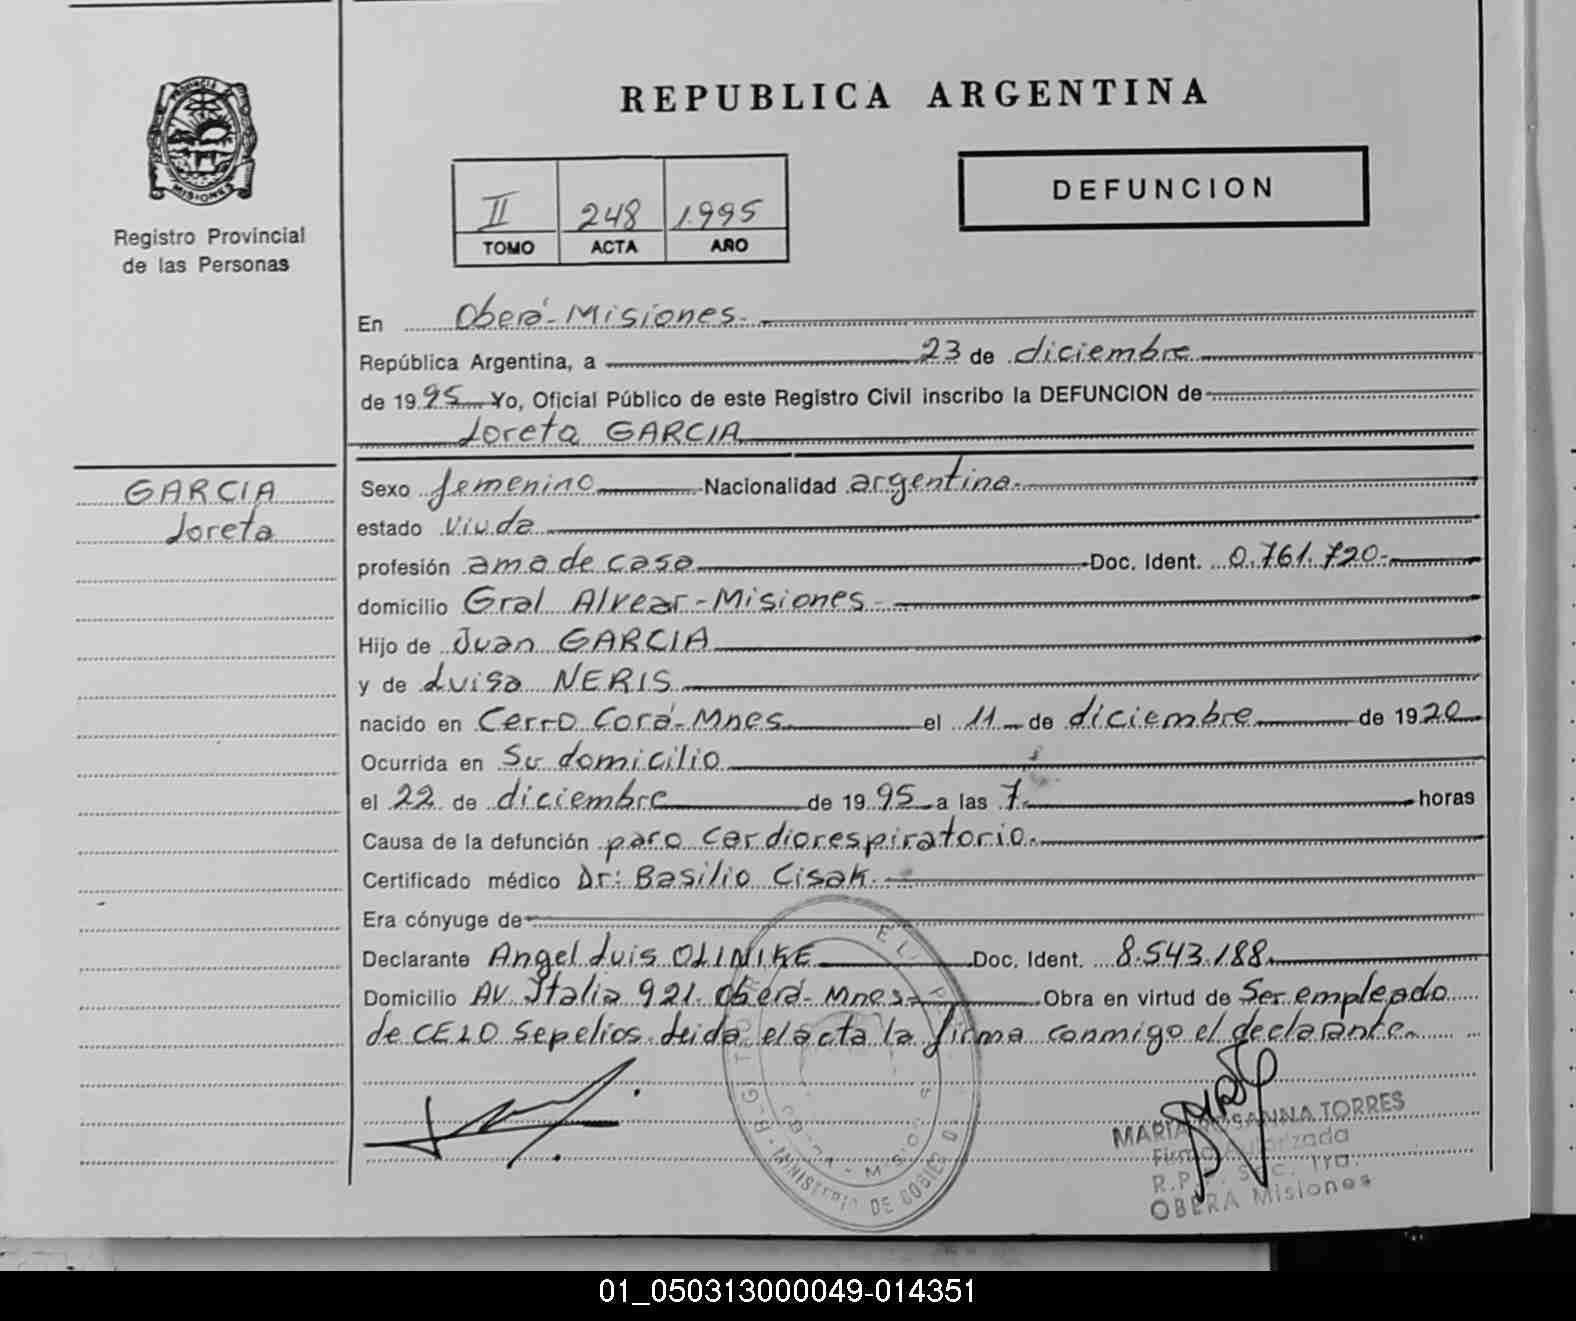 REPUBLICA ARGENTINA
PROVINCIA
MISIONES
Registro Provincial
de las Personas
II 248 1.995
TOMO ACTA AÑO
DEFUNCION
En Oberá-Misiones.
República Argentina, a 23 de diciembre
de 1995 Yo, Oficial Público de este Registro Civil inscribo la DEFUNCION de
Loreta GARCIA
GARCIA
Loreta
Sexo femenino Nacionalidad argentina.
estado viuda
profesión ama de casa Doc. Ident. 0.761.720.
domicilio Gral Alvear-Misiones
Hijo de Juan GARCIA
y de Luisa NERIS
nacido en Cerro Corá-Mnes. el 11 de diciembre de 1920
Ocurrida en Su domicilio
el 22 de diciembre de 1995 a las 7. horas
Causa de la defunción paro cardiorespiratorio.
Certificado médico Dr: Basilio Cisak.
Era cónyuge de
Declarante Angel Luis OLINIKE Doc. Ident. 8.543.188.
Domicilio AV. Italia 921. Oberá-Mnes. Obra en virtud de Ser empleado
de CELO Sepelios. Leida el acta la firma conmigo el declarante.
MINISTERIO DE GOBIERNO
MARIA ROSANNA TORRES
Firma Autorizada
OBERA Misiones
01_050313000049-014351